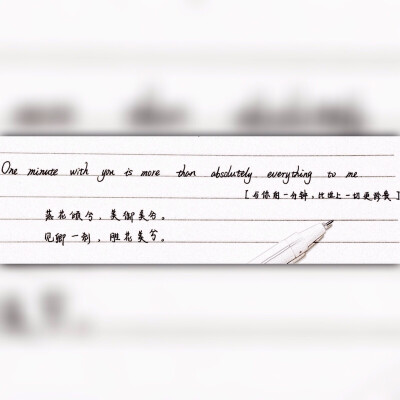 One minute with you is more than absolutely everything to me
[与你用一分钟,比世上一切更珍贵]
落花倾兮,美卿美兮。
见卿一刻,胜花美兮。